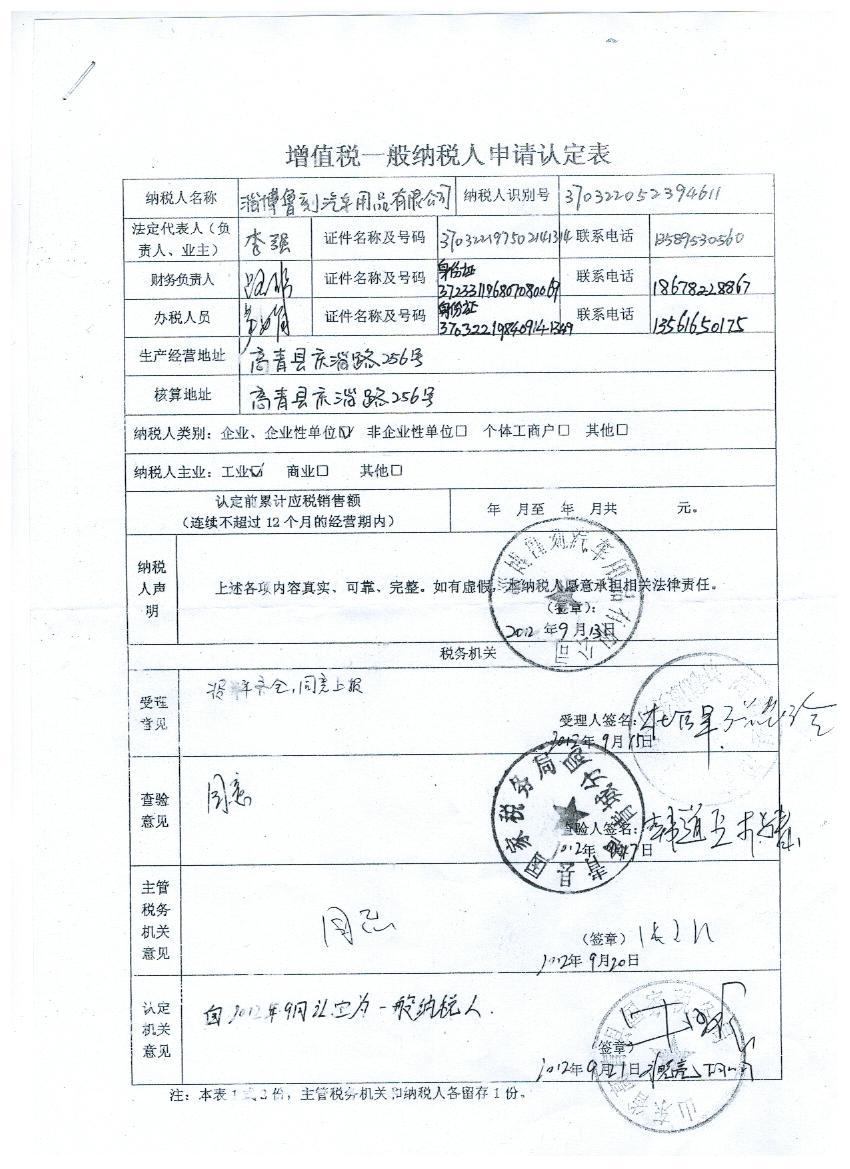 增值税一般纳税人申请认定表
纳税人名称 淄博鲁刻汽车用品有限公司 纳税人识别号 370322052394611
法定代表人（负责人、业主） 李强 证件名称及号码 370322197502141314 联系电话 13589530560
财务负责人 证件名称及号码 身份证 372331196807080069 联系电话 18678228867
办税人员 证件名称及号码 身份证 370322198409141349 联系电话 13561650175
生产经营地址 高青县庆淄路256号
核算地址 高青县庆淄路256号
纳税人类别：企业、企业性单位☑ 非企业性单位□ 个体工商户□ 其他□
纳税人主业：工业☑ 商业□ 其他□
认定前累计应税销售额
（连续不超过 12 个月的经营期内） 年 月至 年 月共 元。
纳税人声明 上述各项内容真实、可靠、完整。如有虚假，本纳税人愿意承担相关法律责任。
（签章）：
2012 年 9 月 13 日
淄博鲁刻汽车用品有限公司
税务机关
受理意见 齐全，同意上报
受理人签名：
2012 年 9 月 15 日
查验意见 同意
查验人签名：
2012 年 9 月 17 日
主管税务机关意见 同意
（签章）
2012 年 9 月 20 日
认定机关意见 自2012年9月认定为一般纳税人.
（签章）
2012 年 9 月 21 日
注：本表 1 式 2 份，主管税务机关和纳税人各留存 1 份。